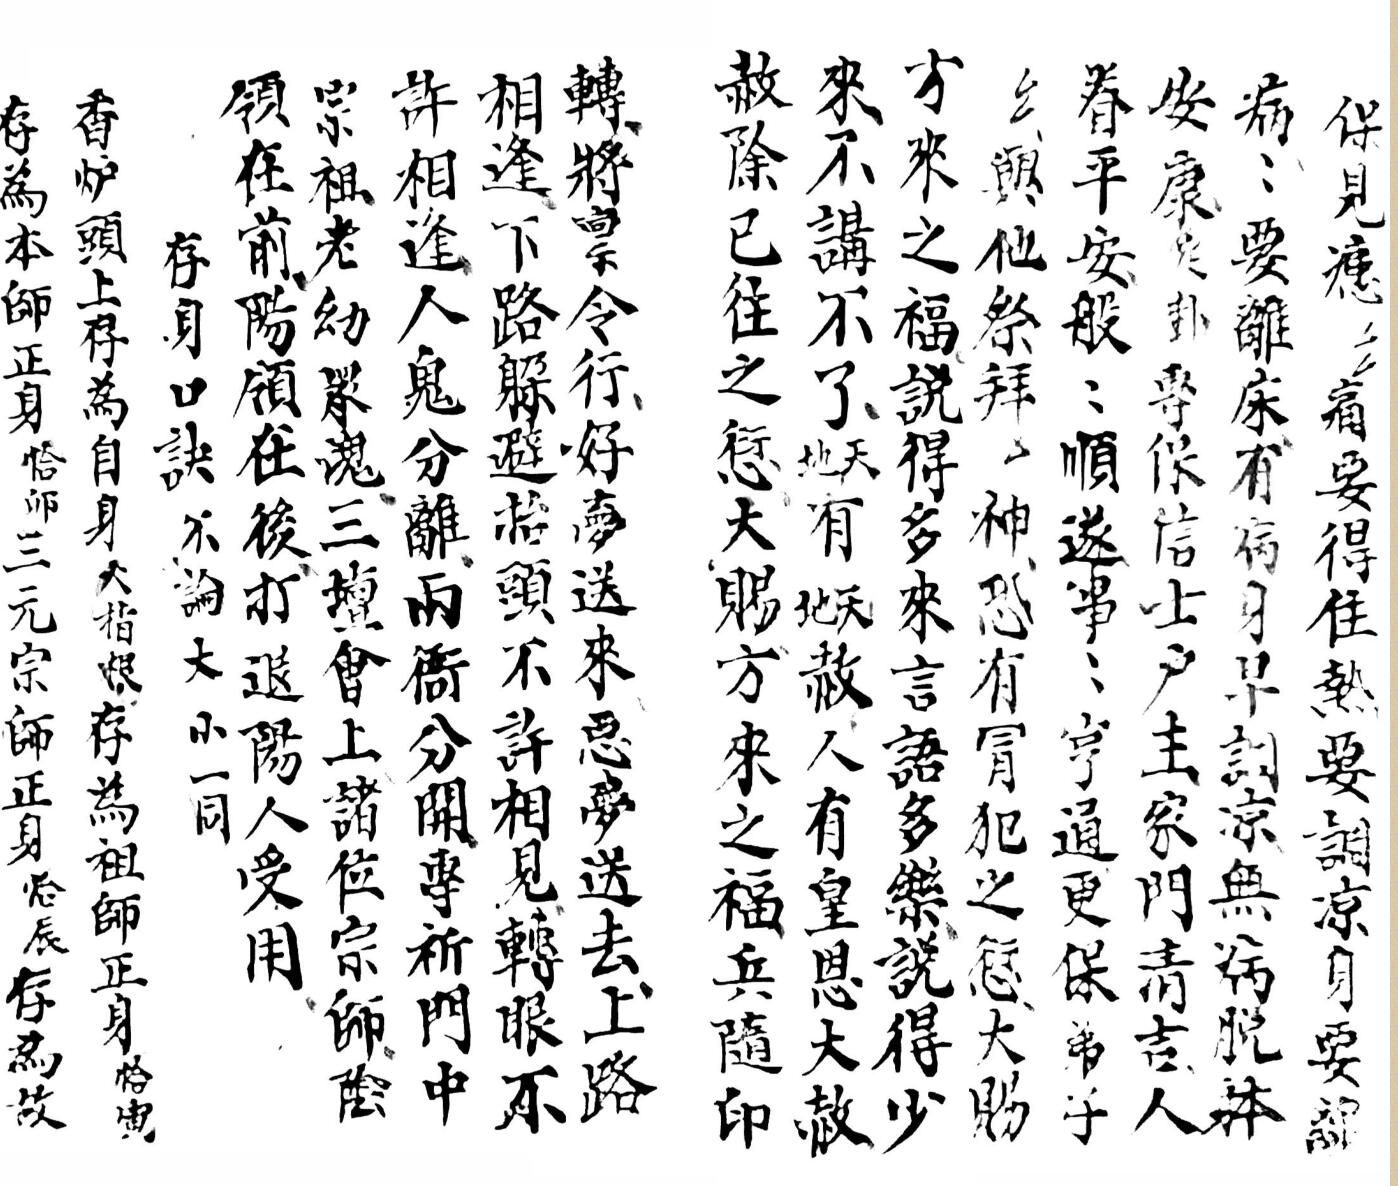 保見癒々痛要得住熱要調凉身要離
病〻要離床有病身早調凉無病脫体
安康卦專保信士戶主家門清吉人
眷平安般〻順遂事〻亨通更保弟子
與他祭拜神恐有冐犯之愆大賜
方來之福説得多來言語多樂説得少
來不講不了天地有天地赦人有皇恩大赦
赦除已往之愆大賜方來之福兵隨印
轉將禀令行好夢送來恶夢送去上路
相逢下路躲避抬頭不許相見轉眼不
許相逢人鬼分離兩衙分開專祈門中
宗祖老幼眾魂三壇會上諸位宗師陰
領在前陽領在後打退陽人受用
存身口訣不論大小一同
香炉頭上存為自身大指根存為祖師正身恰寅
存為本師正身恰卯三元宗師正身恰辰存為故